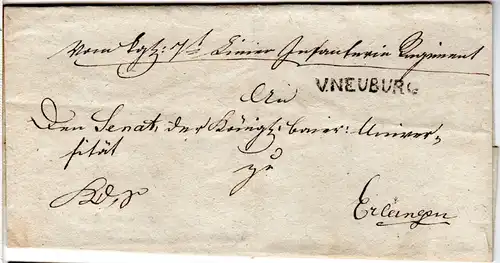 Vom kgl: 7t Linien Infanterie Regiment
V.NEUBURG
An
Den Senat der Königl: baier: Univer-
sität
zu
Erlangen